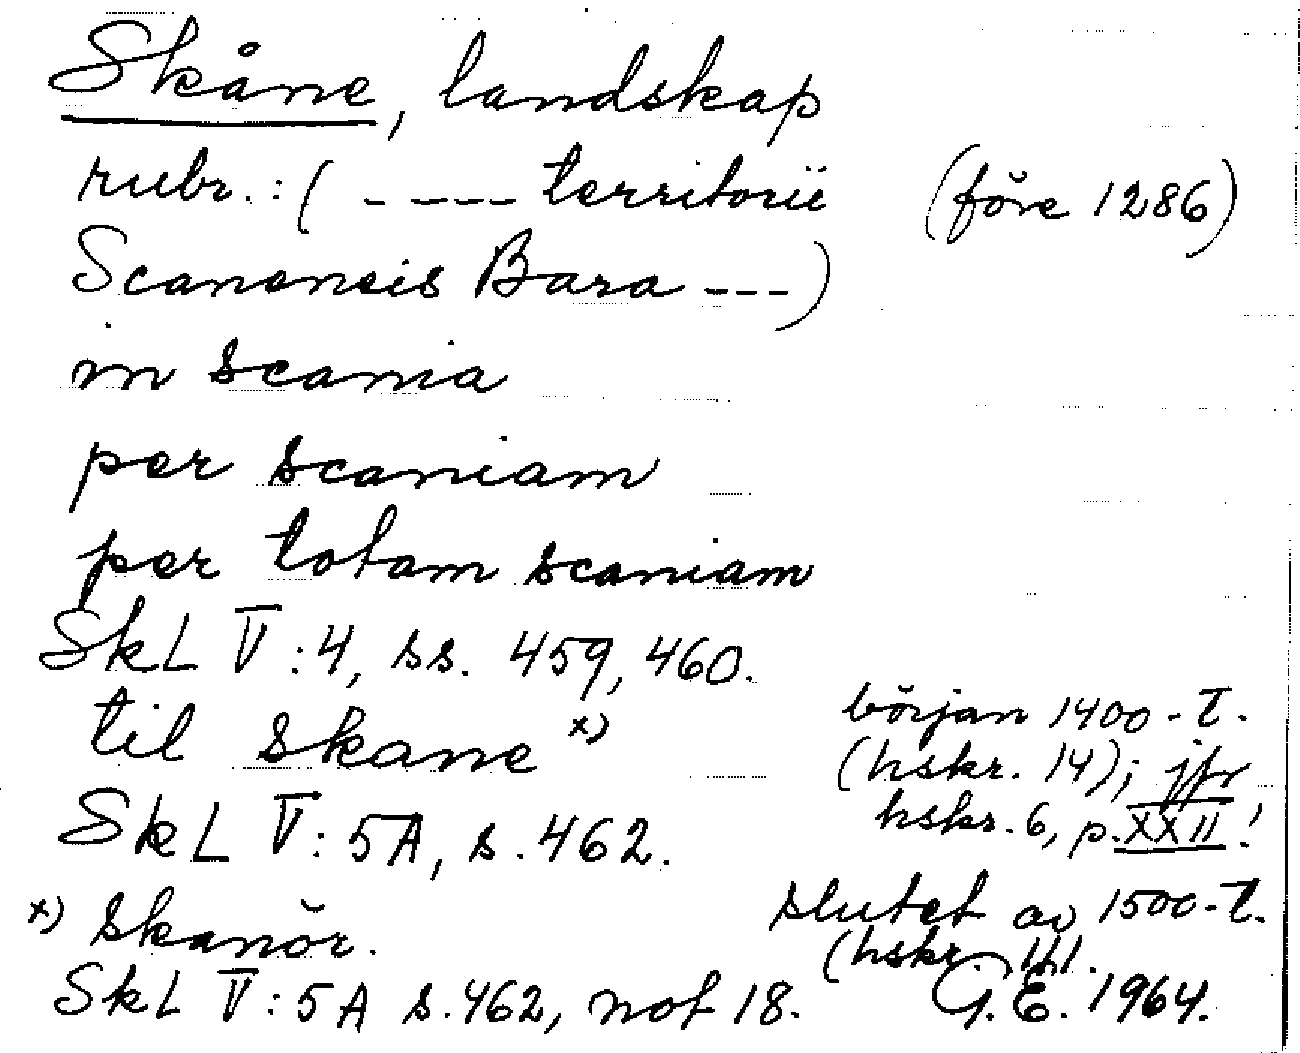 Skåne, landskap
rubr.: ( ---- territorii (före 1286)
Scanensis Bara ---)
in scania
per scaniam
per totam scaniam
SkL V:4, ss. 459, 460.
til skane x) början 1400-t.
(hskr. 14); jfr
SkL V:5A, s. 462. hskr. 6, p. XXII!
x) skanör. slutet av 1500-t.
(hskr. 111.
SkL V:5A s. 462, not 18. G.E. 1964.